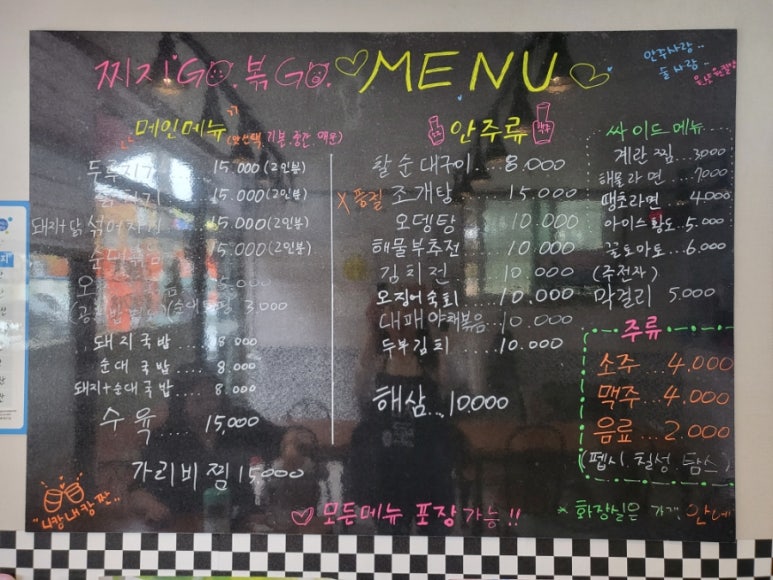 찌지GO.볶GO. MENU
안주사랑..
술사랑..
메인메뉴
안주류
싸이드 메뉴
두루치기 15.000(2인분)
15.000(2인분)
돼지+닭 섞어찌개 15.000(2인분)
순대볶음 15.000(2인분)
3,000
돼지국밥 8.000
순대국밥 8.000
돼지+순대국밥 8.000
수육.... 15,000
가리비찜 15,000
찰순대구이... 8.000
X품절 조개탕.... 15,000
오뎅탕 10.000
해물부추전 10,000
김치전.... 10.000
오징어숙회.... 10.000
대패야채볶음...10.000
두부김치.... 10.000
해삼... 10,000
계란찜...3000
해물라면...7000
땡초라면...4.000
아이스황도..5.000
꿀토마토..6.000
(주전자)
막걸리 5.000
주류
소주...4.000
맥주...4.000
음료...2.000
(펩시.칠성.탐스)
"니캉내캉짠..
모든메뉴 포장가능!!
* 화장실은 가게 안에